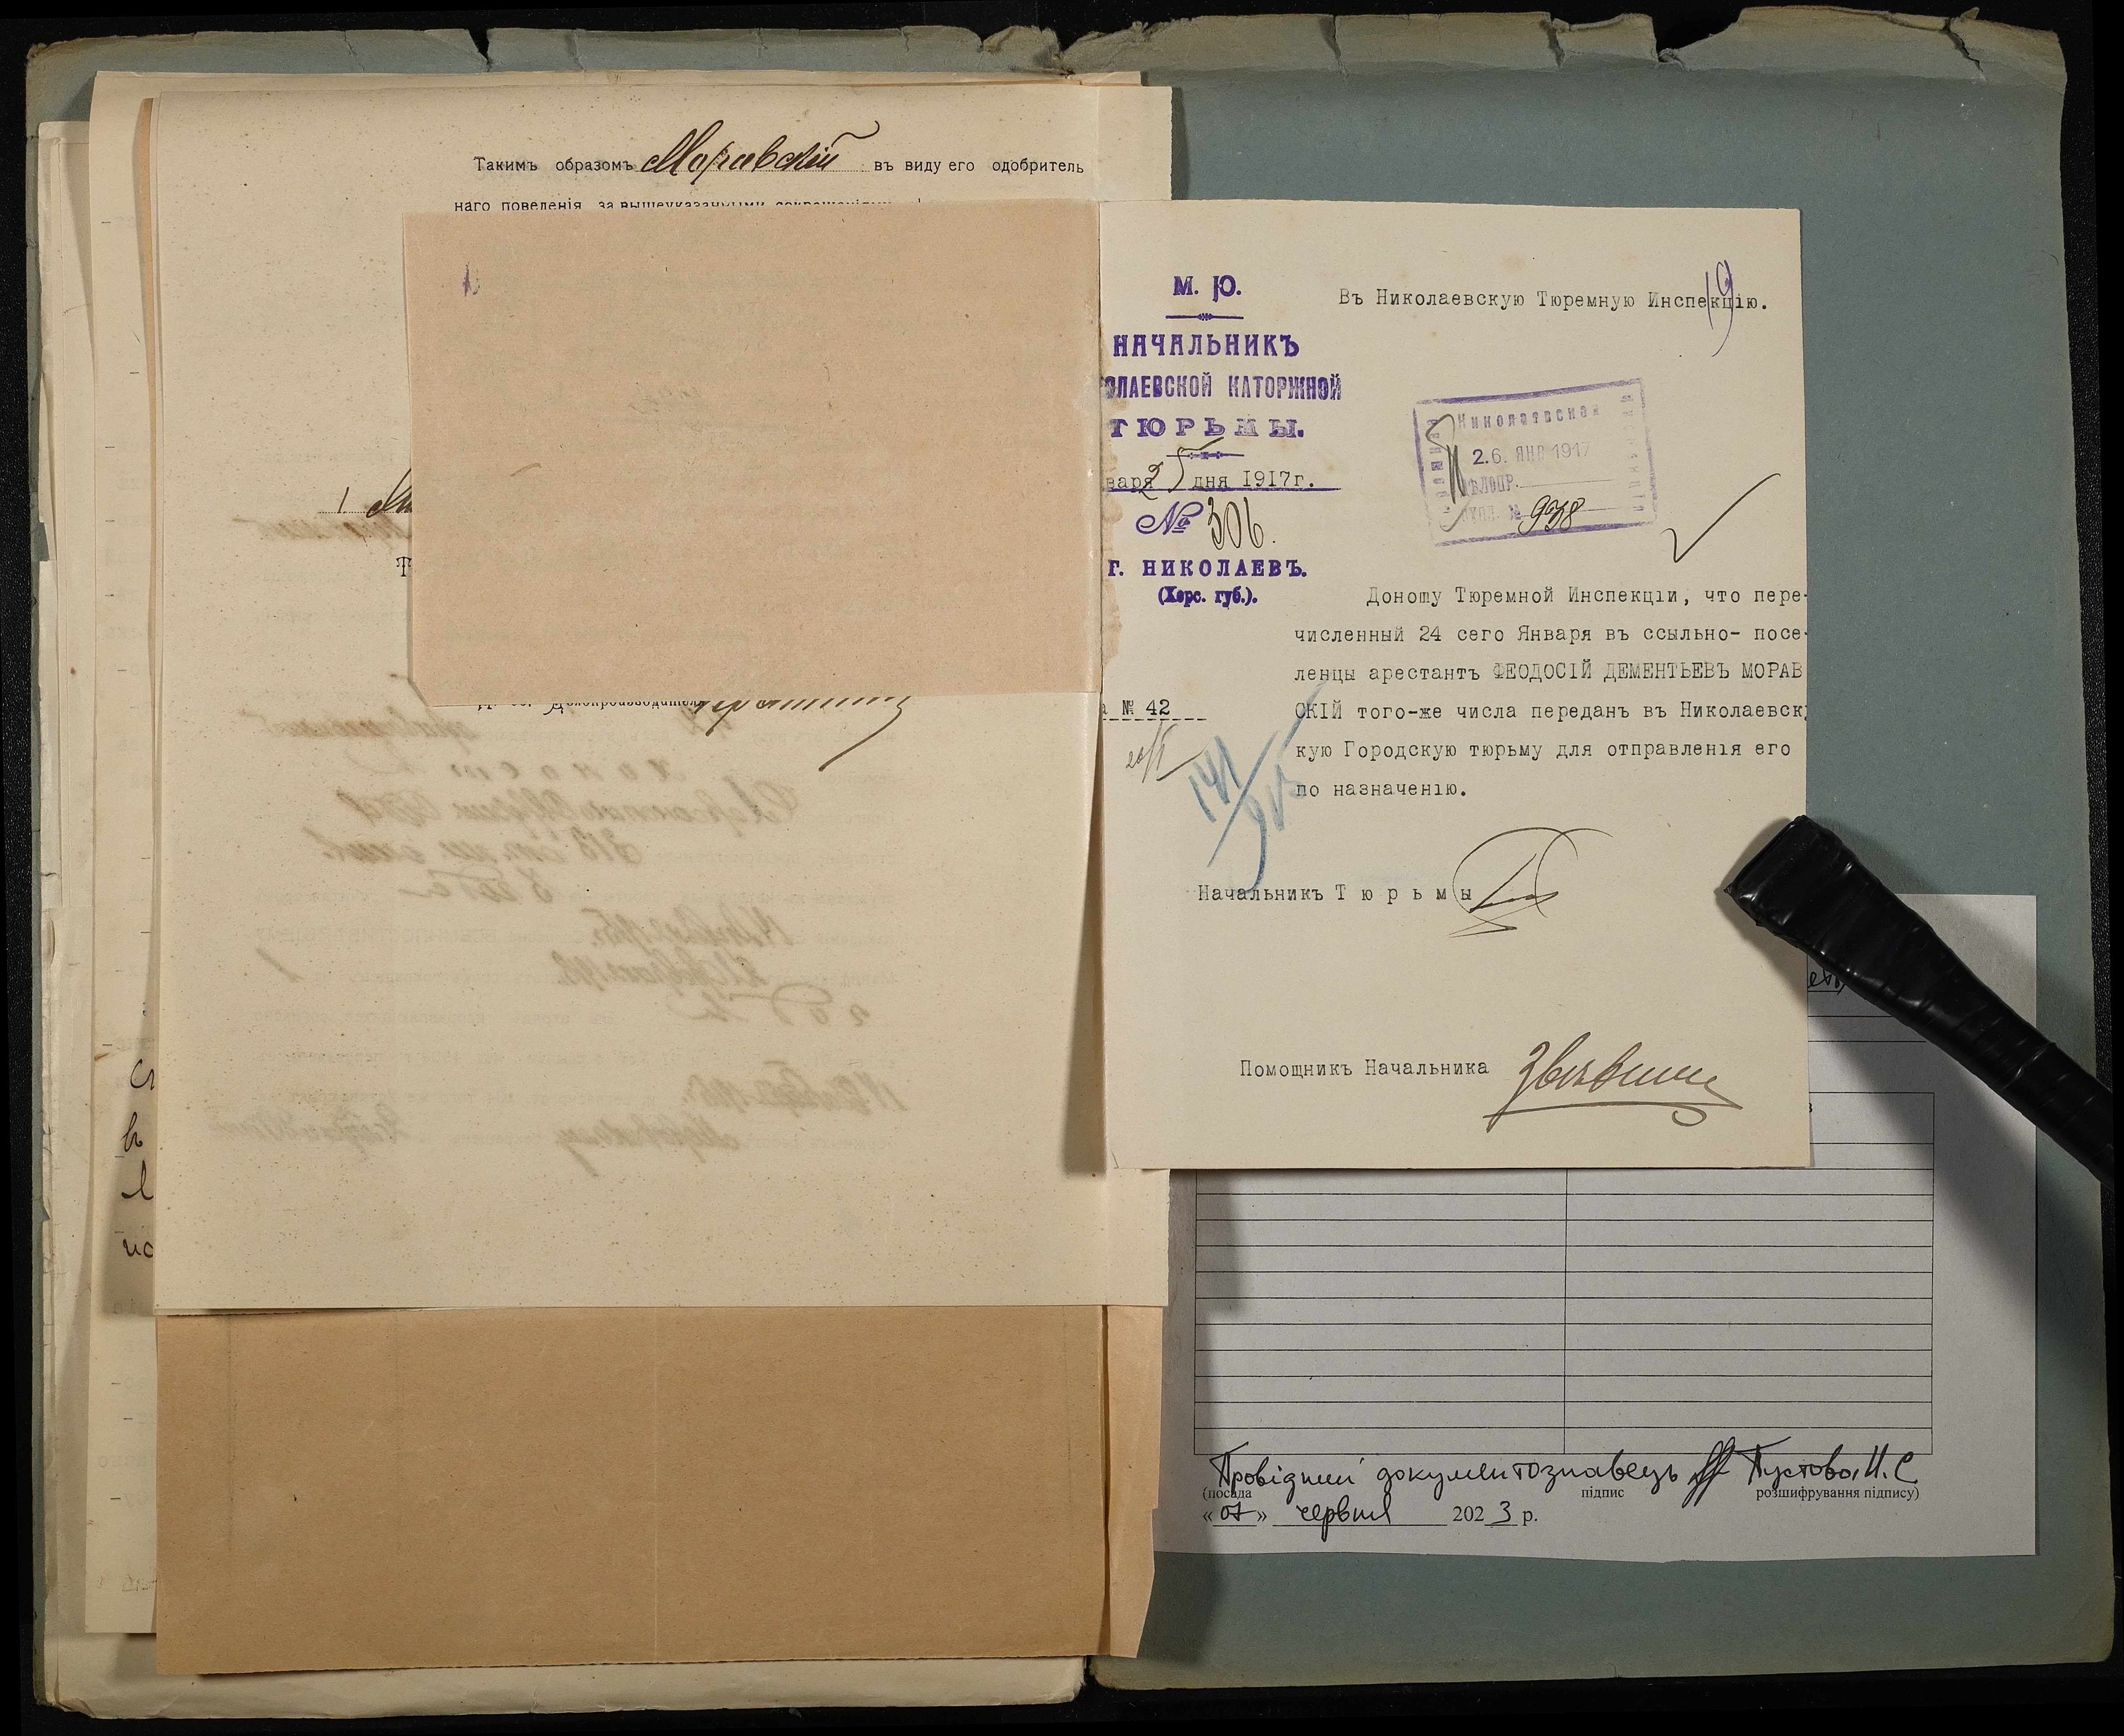 Такимъ образомъ Моравскій въ виду его одобритель
наго поведенія за вышеуказанными сокращеніями
19
М. Ю.
НАЧАЛЬНИКЪ
ОЛАЕВСКОЙ КАТОРЖНОЙ
ТЮРЬМЫ.
варя 25 дня 1917г.
№ 306.
Г. НИКОЛАЕВЪ.
(Херс. губ.).
№ 42
Въ Николаевскую Тюремную Инспекцію.
Николаевская
26. ЯНВ 1917
ДѢЛОПР.
ВХОД. № 938
Доношу Тюремной Инспекціи, что пере-
численный 24 сего Января въ ссыльно- посе-
ленцы арестантъ ФЕОДОСІЙ ДЕМЕНТЬЕВЪ МОРАВ
СКІЙ того-же числа переданъ въ Николаевск
кую Городскую тюрьму для отправленія его
по назначенію.
141
Начальникъ Тюрьмы
Помощникъ Начальника
Провідний документознавець Пустова Н.С
(посада підпис розшифрування підпису)
«07» червня 2023 р.